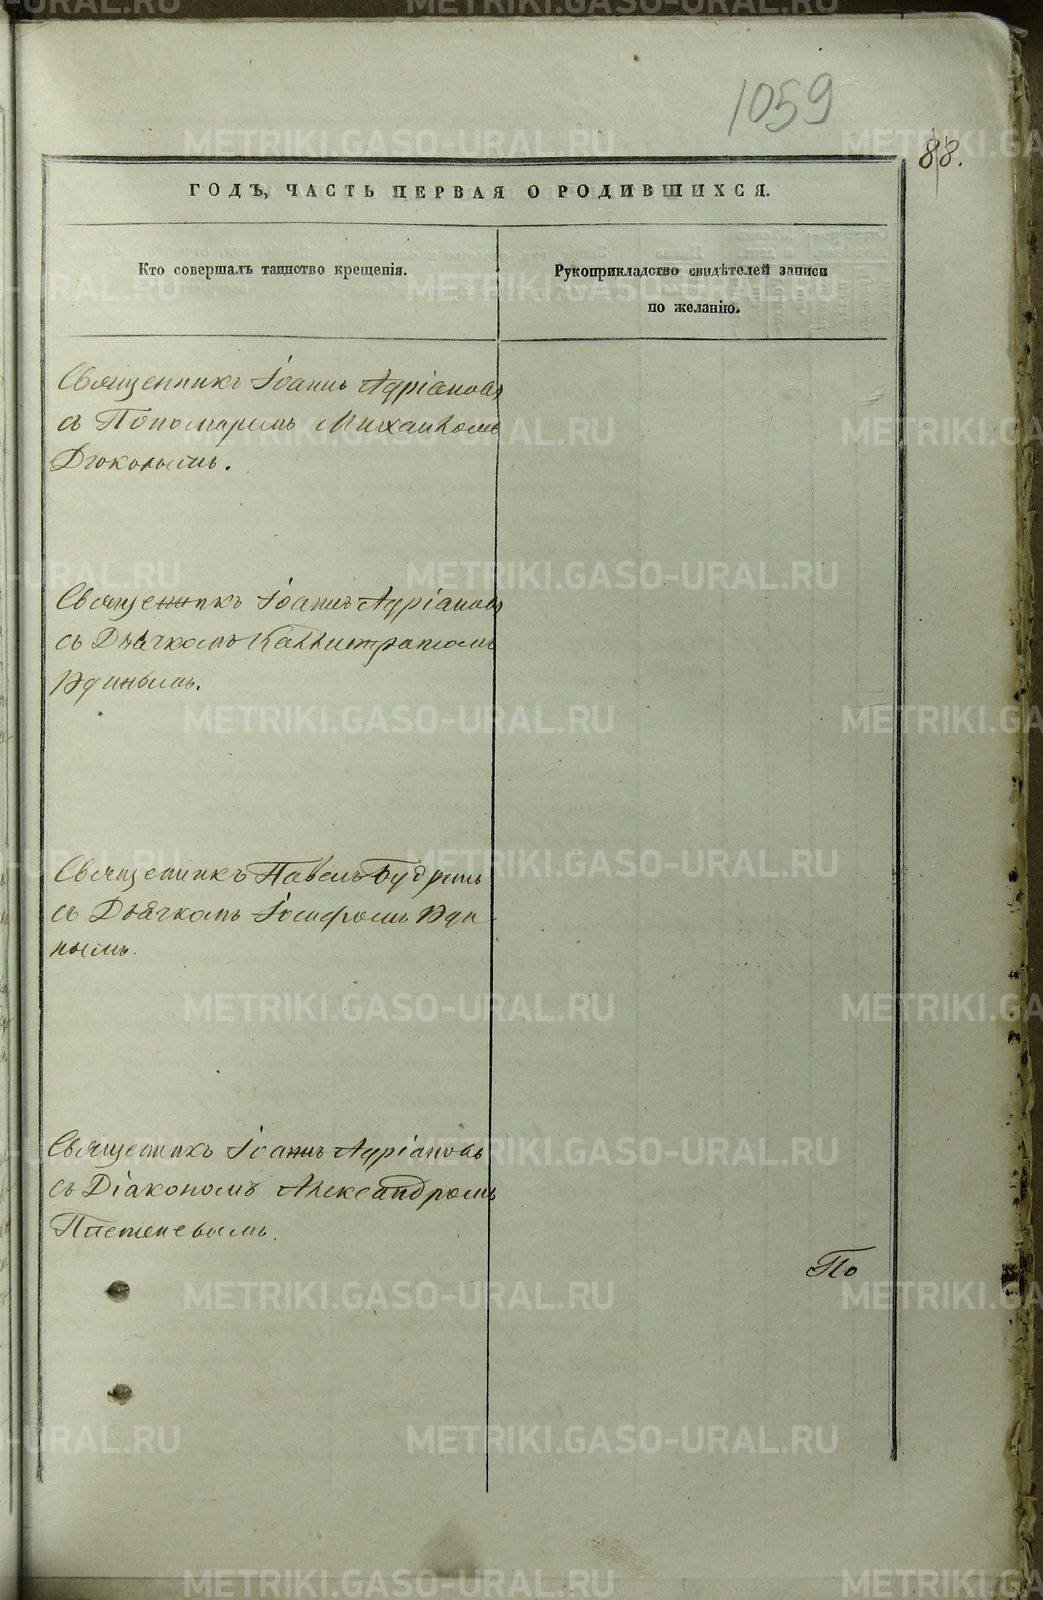 1059
88.
ГОДЪ, ЧАСТЬ ПЕРВАЯ О РОДИВШИХСЯ.
Кто совершалъ таинство крещенія.
Рукоприкладство свидѣтелей записи
по желанію.
Священникъ Іоаннъ Адріановъ
съ Пономаремъ Михаиломъ
Дюковымъ.
Священникъ Іоаннъ Адріановъ
съ Дьячкомъ Каллистратомъ
Удинымъ.
Священникъ Павелъ Будринъ
съ Дьячкомъ Іосифомъ Уди
нымъ.
Священникъ Іоаннъ Адріановъ
съ Діакономъ Александромъ
По
METRIKI.GASO-URAL.RU